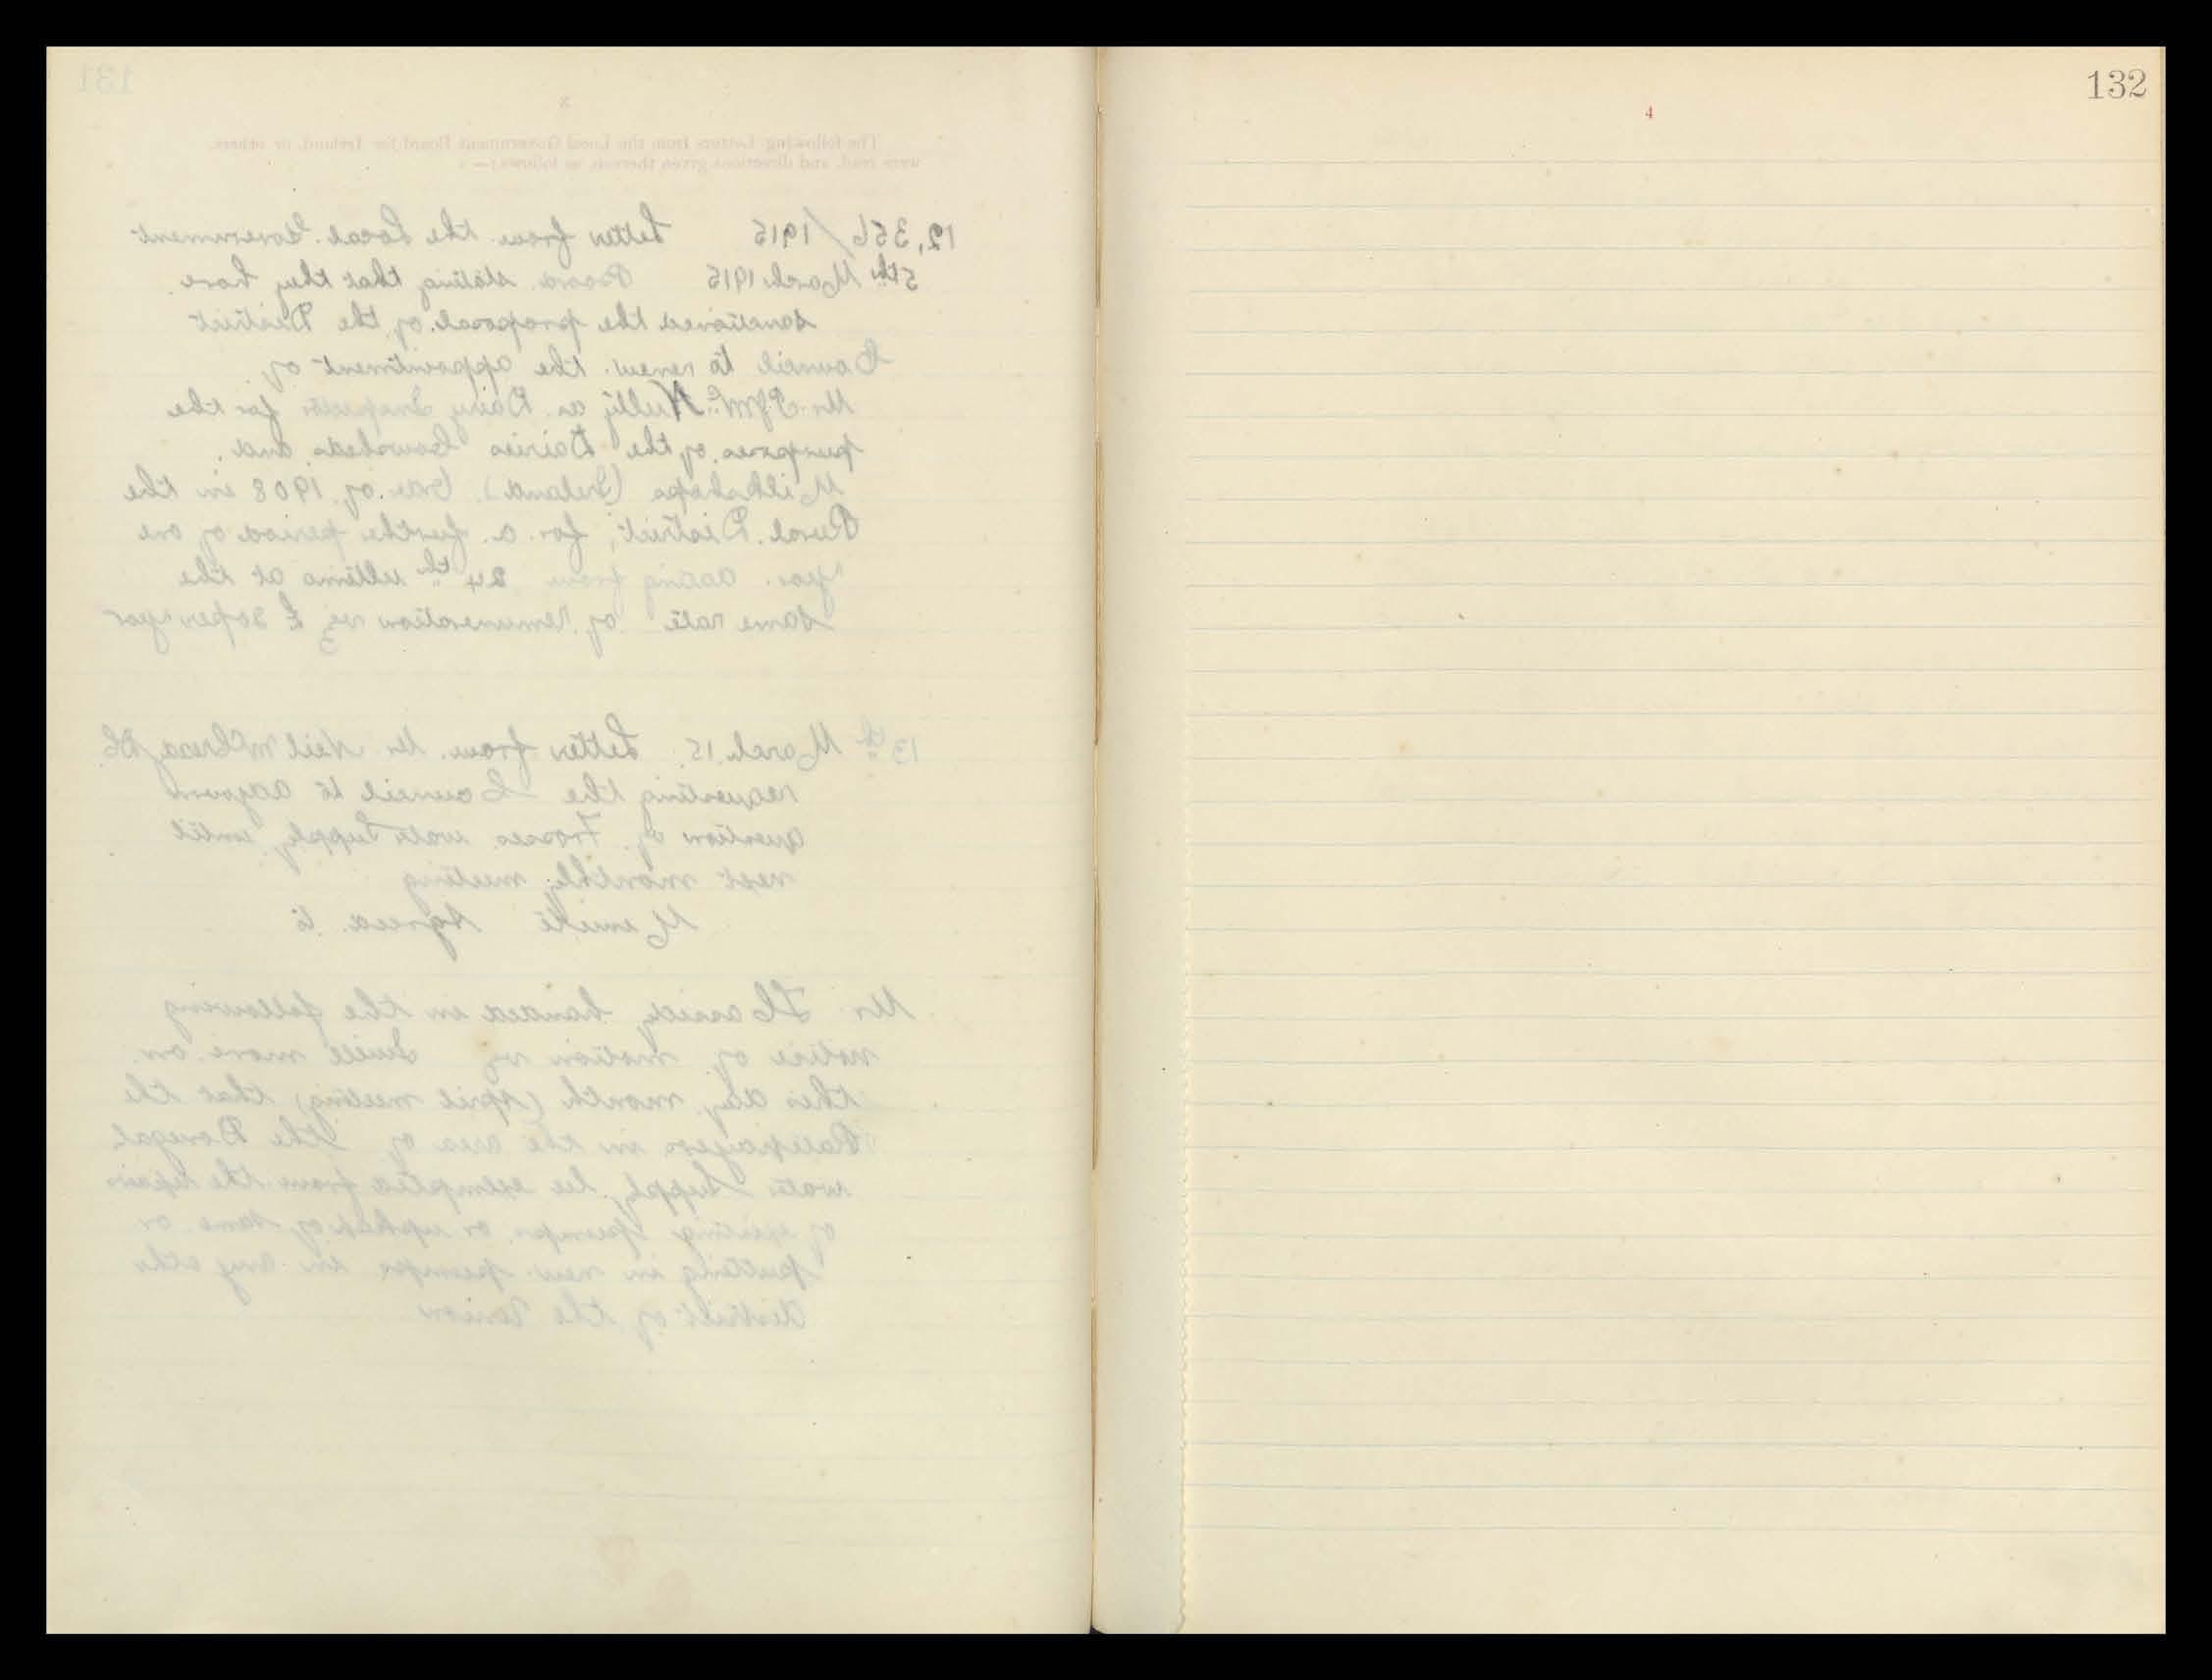 131
x
The following Letters from the Local Government Board for Ireland, or others,
were read, and directions given thereon, as follows:—
12,356/1915 Letter from the Local Government
5th March 1915 Board stating that they have
sanctioned the proposal of the District
Council to renew the appointment of
Mr P J McNulty as Dairy Inspector for the
purposes of the Dairies Cowsheds and
Milkshops (Ireland) Order of 1908 in the
Rural District, for a further period of one
year dating from 24th ultimo at the
same rate of remuneration viz £ 20 per year
13th March 15 Letter from Mr Neil McCreadie
requesting the Council to adjourn
question of Frosses water Supply until
next monthly meeting
Minute Agreed to
Mr handed in the following
notice of motion viz I will move on
this day month (April meeting) that the
Ratepayers in the area of the Donegal
water Supply be exempted from the repair
of existing pumps or upkeep of same or
putting in new pumps in any other
district of the Union
132
4